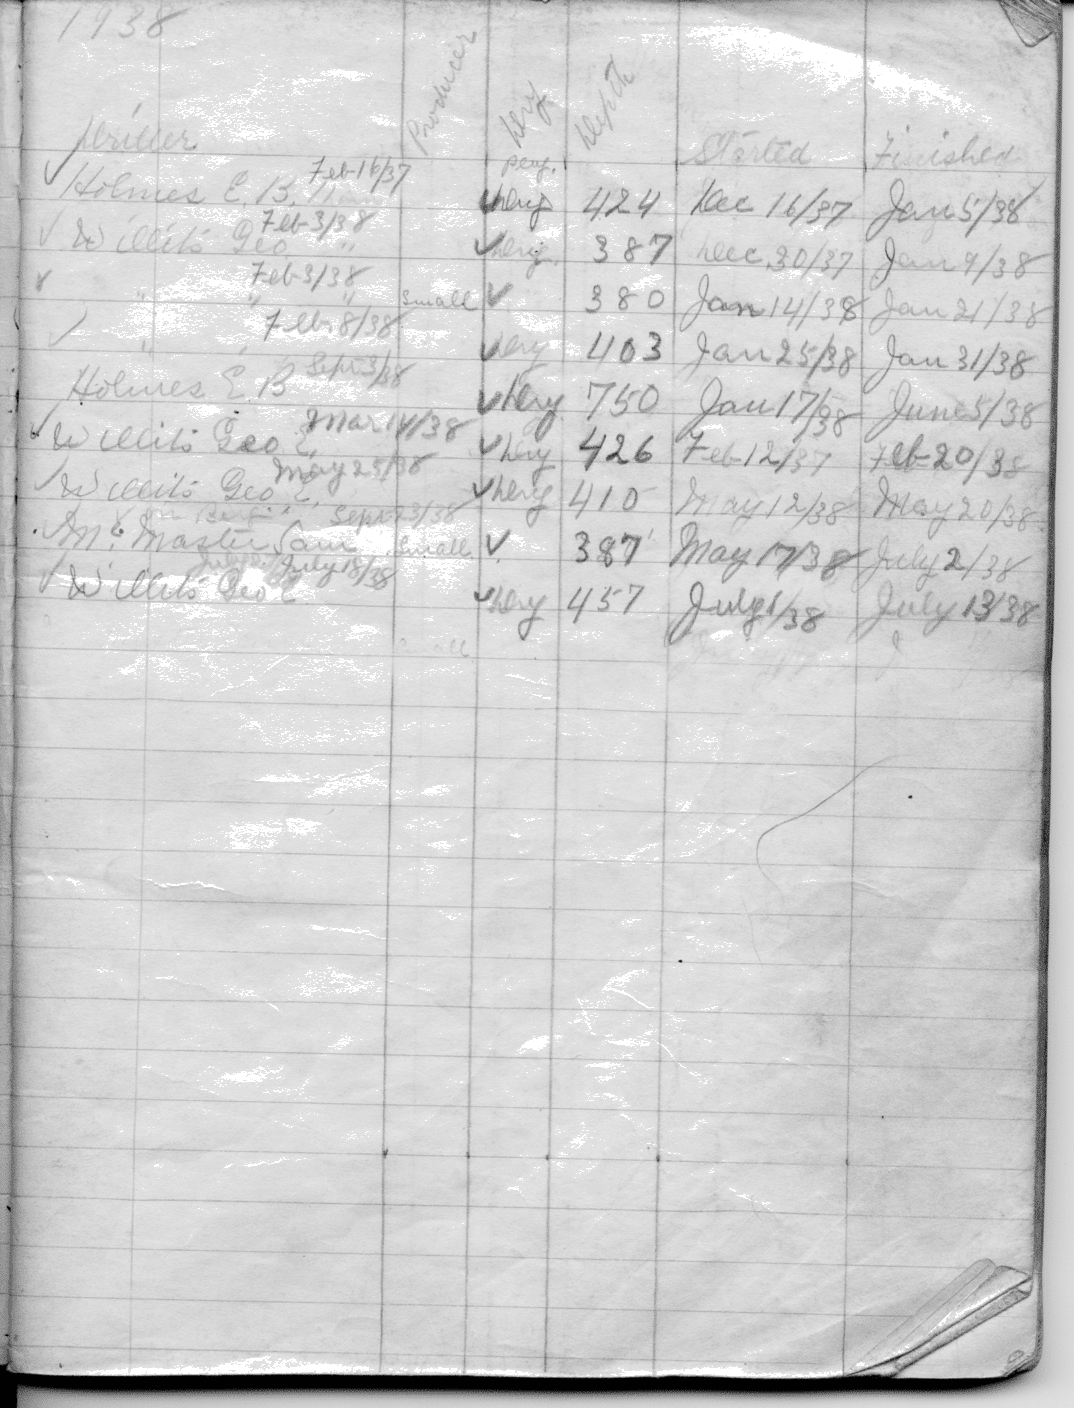 1938
Driller Producer Dry Depth Started Finished
Feb-16/37
Holmes E. B. Dry 424 Dec 16/37 Jan 5/38
Feb-3/38
Willits Geo " Dry 387 Dec 30/37 Jan 9/38
Feb 3/38
" " " Small 380 Jan 14/38 Jan 21/38
Feb 8/38
" " Dry 403 Jan 25/38 Jan 31/38
Sept 3/38
Holmes E B Dry 750 Jan 17/38 June 5/38
Mar 14/38
Willits Geo E. Dry 426 Feb-12/37 Feb-20/38
May 25/38
Willits Geo E. Dry 410 May 12/38 May 20/38
Sept-23/38
Mc Master Sam Small 387 May 17/38 July 2/38
July 18/38
Willits Geo E Dry 457 July 1/38 July 13/38